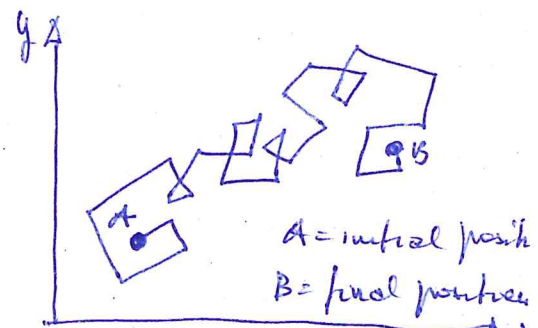 y
A
B
A = initial posit
B = final position